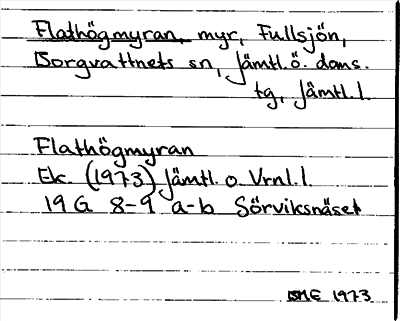 Flathögmyran, myr, Fullsjön,
Borgvattnets sn, Jämtl. ö. doms.
tg, Jämtl. l.
Flathögmyran
Ek. (1973) Jämtl. o. Vrnl. l.
19 G 8-9 a-b Sörviksnäset
1973